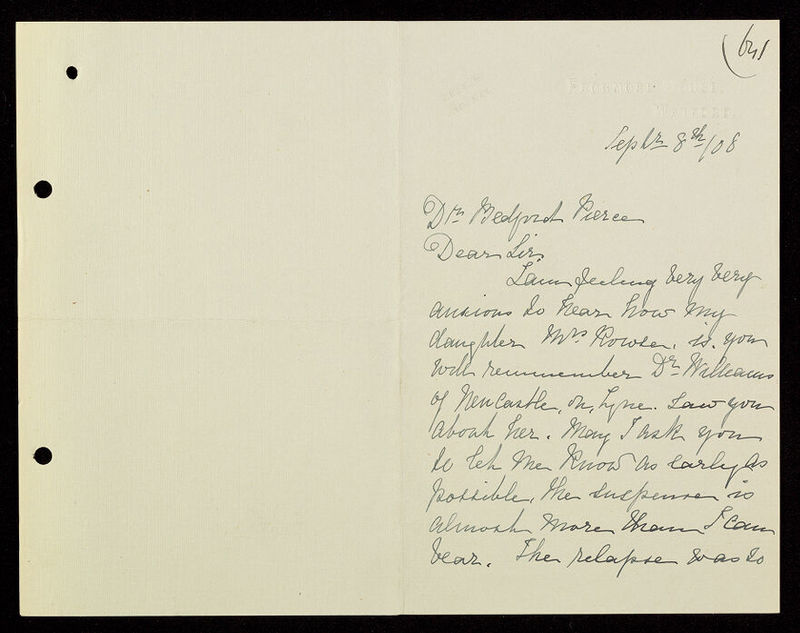 (64)
Septr 8th/08
Dr. Bedford Pierce
Dear Sir.
I am feeling very very
anxious to hear how my
daughter Mrs Rowse. is. you
will remmember Dr Williams
of Newcastle, on, Tyne. saw you
about her. May I ask you
to let me know as early as
possible, the suspense is
almost more than I can
bear. The relapse was so